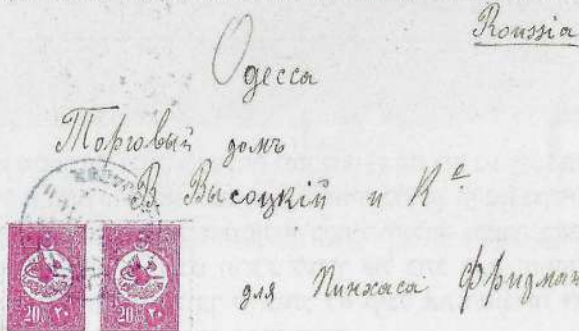 Roussia
Одесса
Торговый домъ
В. Высоцкій и Кº
для Пинхаса Фридман
20 ٢٠ 20 ٢٠